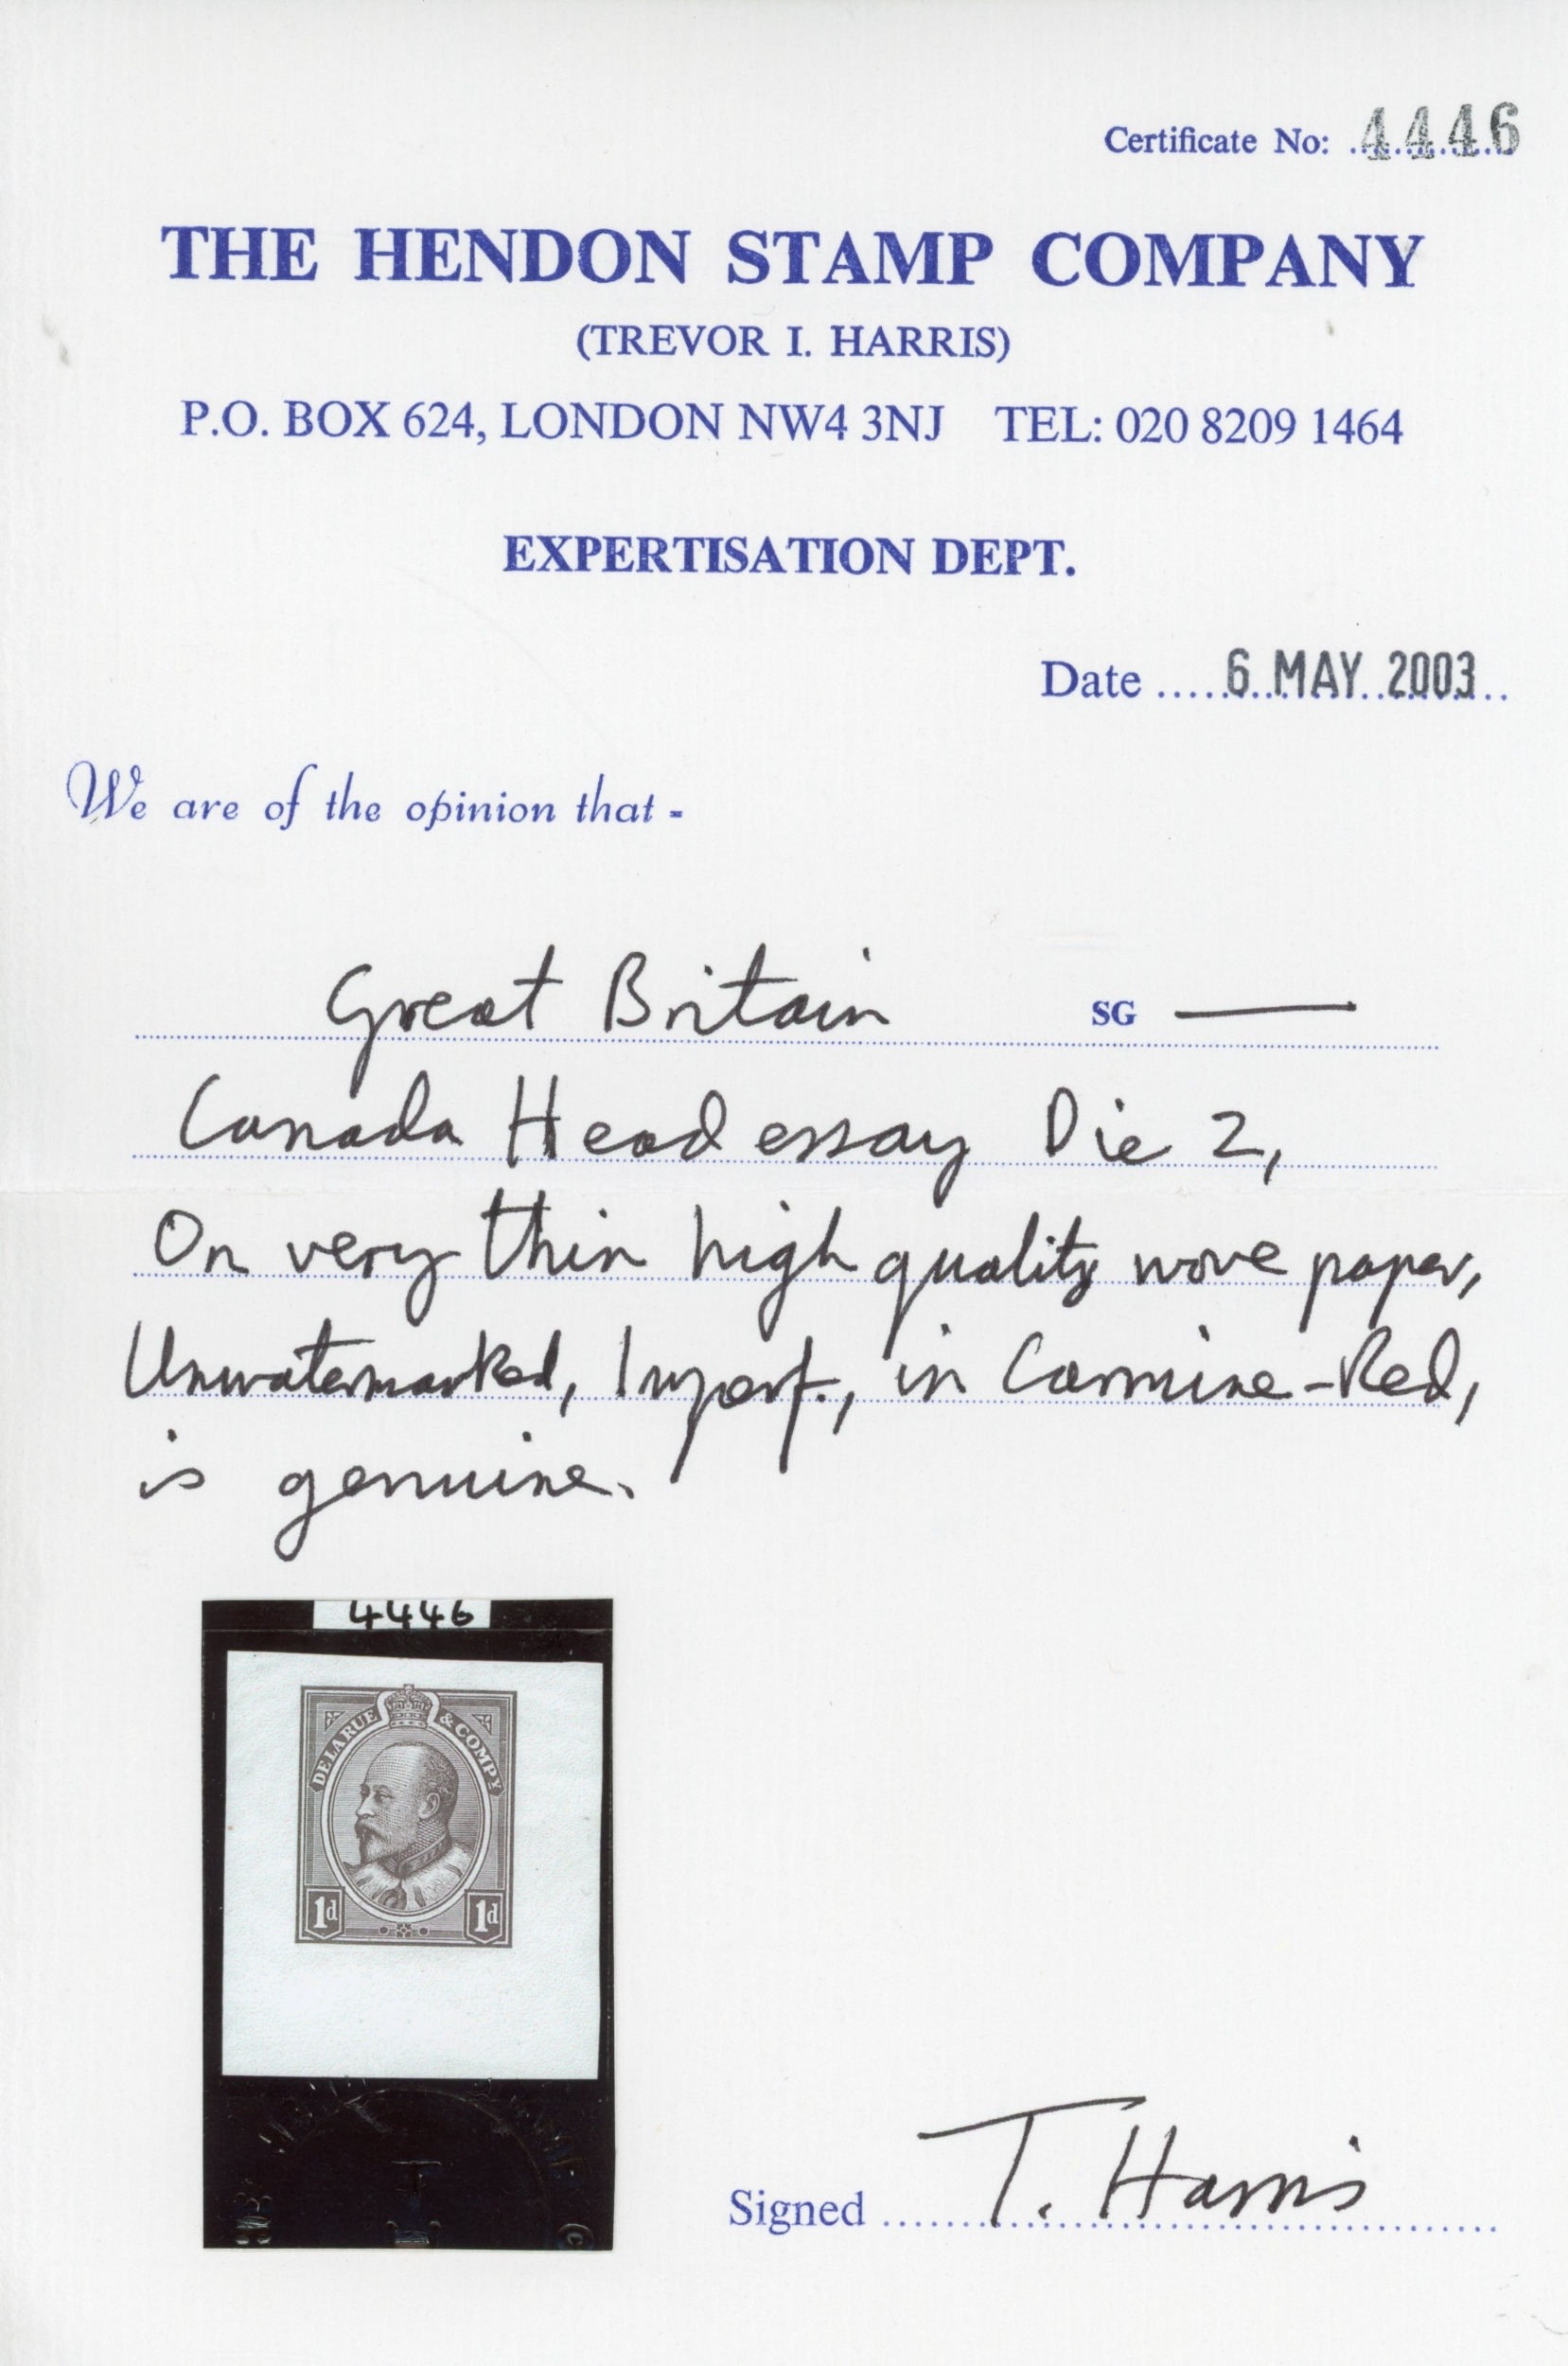 Certificate No: 4446
THE HENDON STAMP COMPANY
(TREVOR I. HARRIS)
P.O. BOX 624, LONDON NW4 3NJ TEL: 020 8209 1464
EXPERTISATION DEPT.
Date ..... 6 MAY 2003 ..
We are of the opinion that -
Great Britain SG —
Canada Head essay Die 2,
On very thin high quality wove paper,
Unwatermarked, Imperf., in Carmine-Red,
is genuine.
4446
DE LA RUE & COMPY
1d 1d
Signed T. Harris